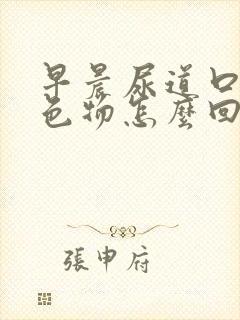 早晨尿道口
色物怎麼回
張申府